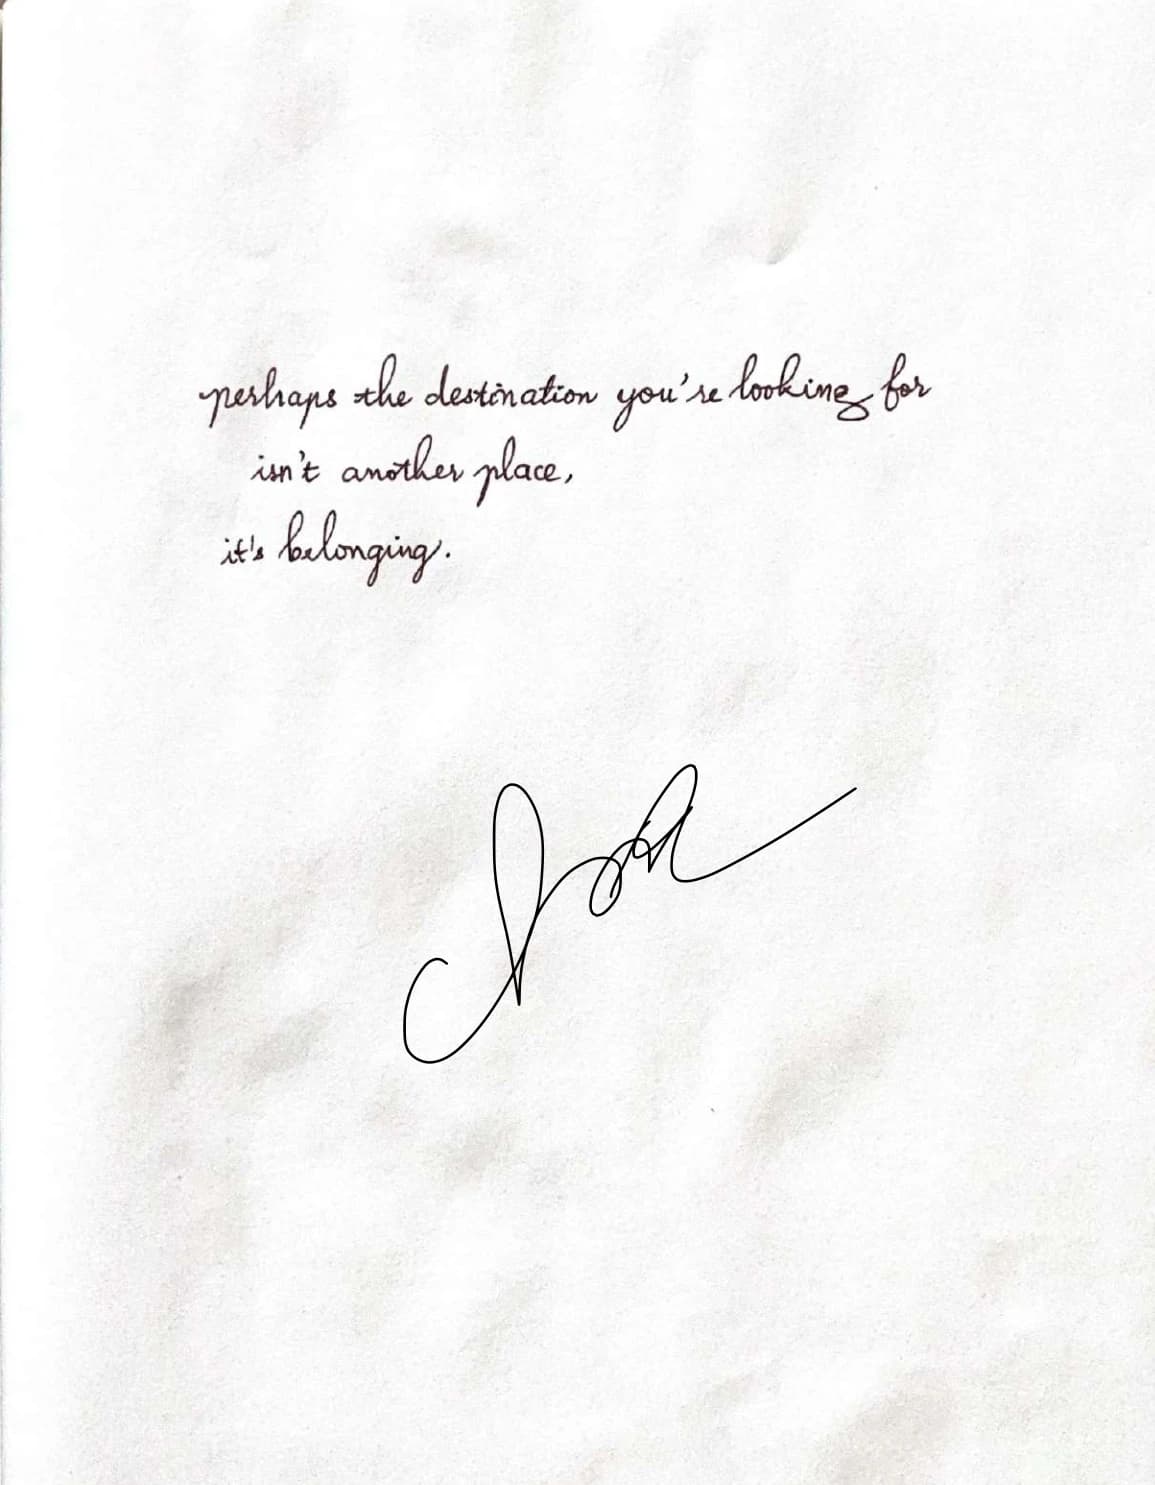 perhaps the destination you're looking for
isn't another place,
it's belonging.